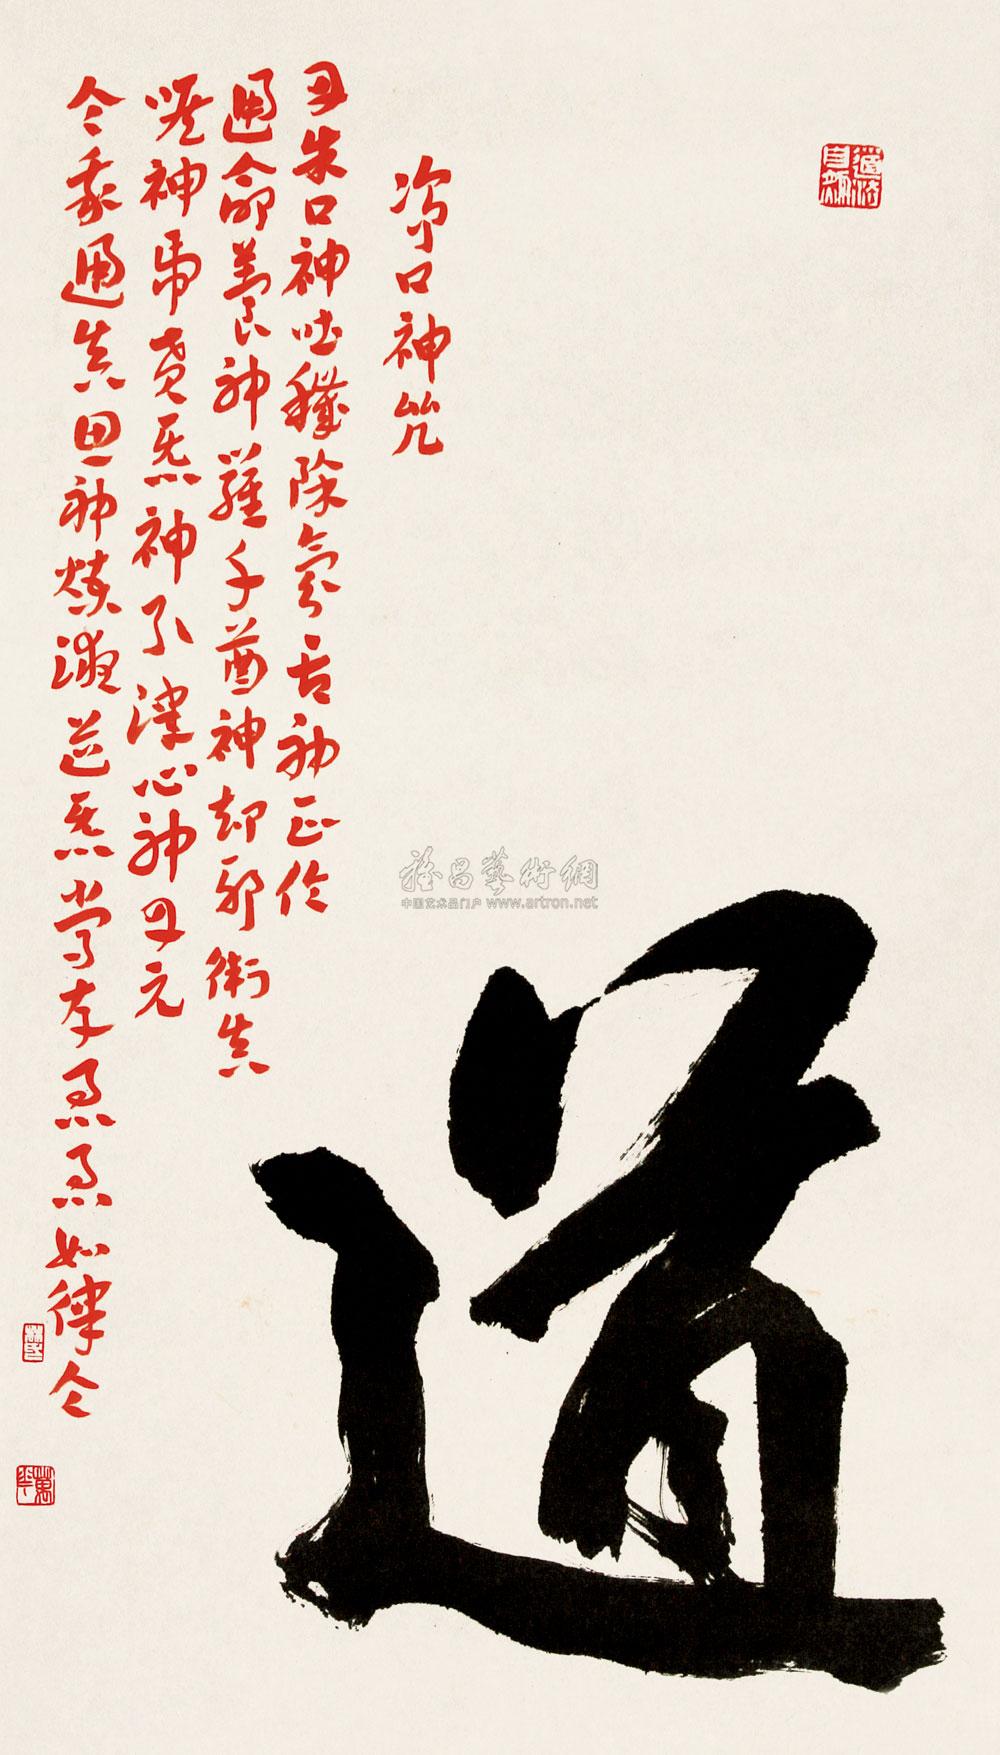 道法自然
淨口神咒
丹朱口神吐穢除氛舌神正倫
通命養神羅千齒神却邪衛真
喉神虎賁炁神引津心神丹元
令我通真思神煉液道炁常存急急如律令
道
雅昌藝術網
中国艺术品门户 www.artron.net